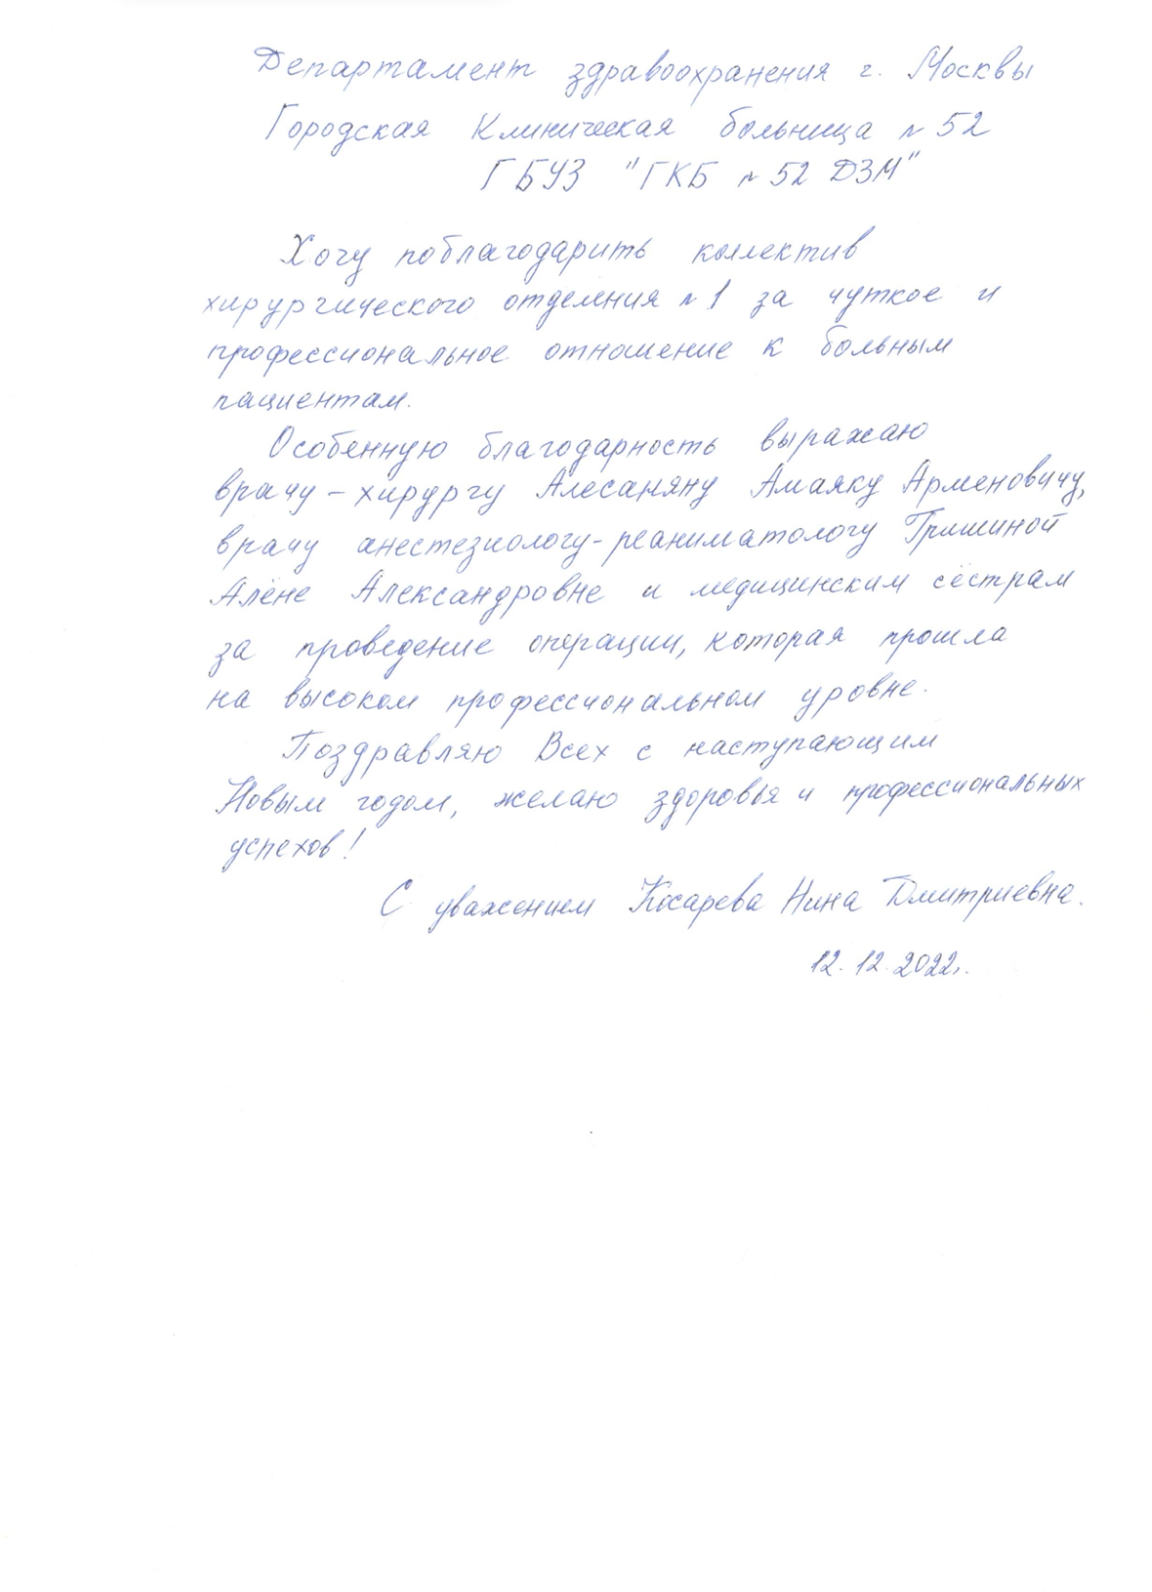 Департамент здравоохранения г. Москвы
Городская Клиническая больница № 52
ГБУЗ "ГКБ № 52 ДЗМ"
Хочу поблагодарить коллектив
хирургического отделения № 1 за чуткое и
профессиональное отношение к больным
пациентам.
Особенную благодарность выражаю
врачу-хирургу Алесаняну Амаяку Арменовичу,
врачу анестезиологу-реаниматологу Гришиной
Алёне Александровне и медицинским сёстрам
за проведение операции, которая прошла
на высоком профессиональном уровне.
Поздравляю Всех с наступающим
Новым годом, желаю здоровья и профессиональных
успехов!
С уважением Косарева Нина Дмитриевна.
12.12.2022г.